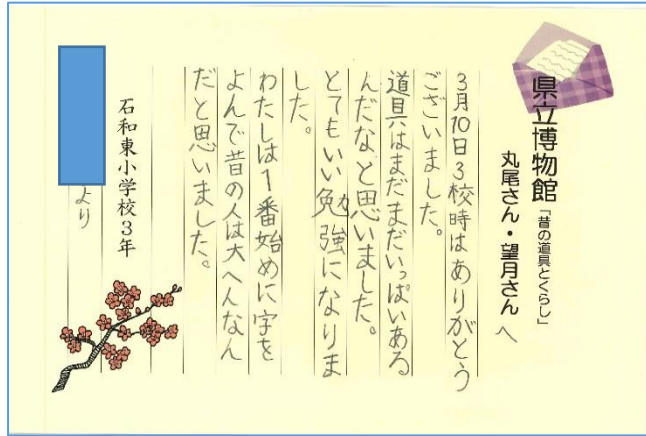 県立博物館「昔の道具とくらし」
丸尾さん・望月さん へ
3月10日3校時はありがとう
ございました。
道具はまだまだいっぱいある
んだなと思いました。
とてもいい勉強になりま
した。
わたしは1番始めに字を
よんで昔の人は大へんなん
だと思いました。
石和東小学校3年
より